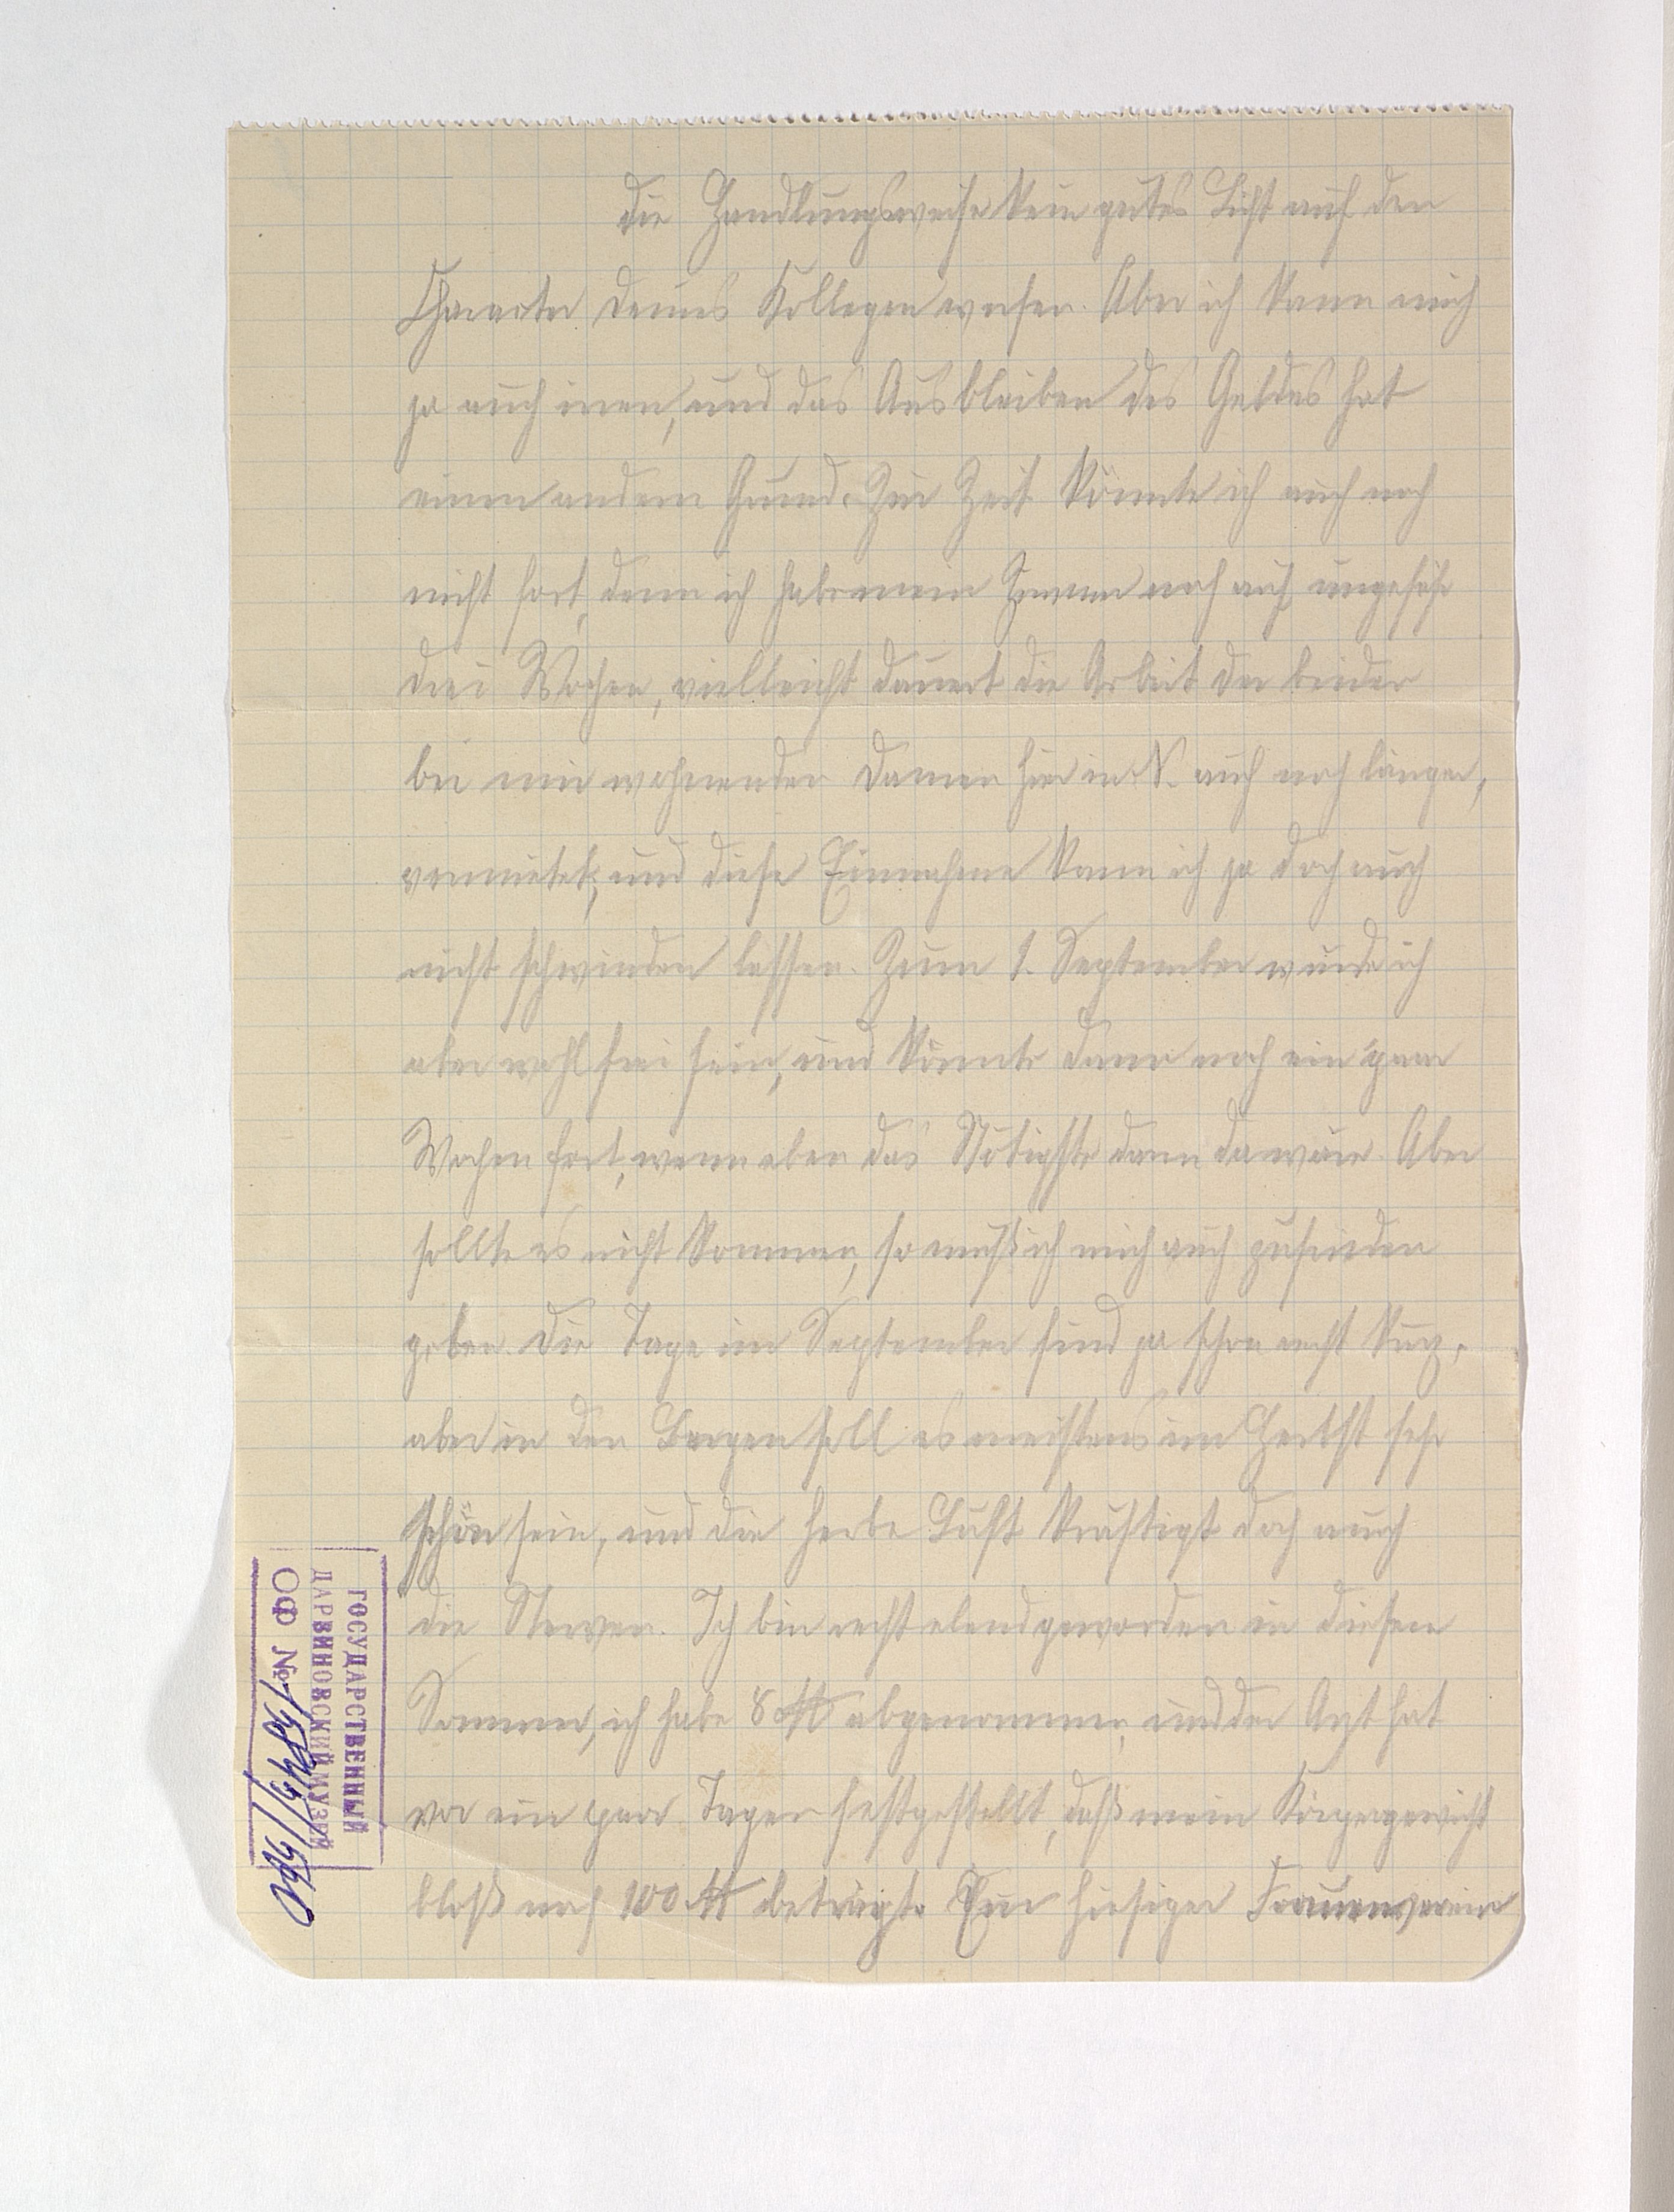 die Handlungsweise kein gutes Licht auf den
Character deines Kollegen werfen. Aber ich kann mich
ja auch irren, und das Ausbleiben des Geldes hat
einen andern Grund. Zur Zeit könnte ich auch noch
nicht fort, denn ich habe mein Zimmer noch auf ungefähr
drei Wochen, vielleicht dauert die Arbeit der beiden
bei mir wohnenden Damen hier in N. auch noch länger,
vermietet, und diese Einnahme kann ich ja doch auch
nicht schwinden lassen. Zum 1. September würde ich
aber wohl frei sein, und könnte dann noch ein paar
Wochen fort, wenn eben das Nötigste dann da wäre. Aber
sollte es nicht kommen, so muß ich mich auch zufrieden
geben. Die Tage im September sind ja schon recht kurz,
aber in den Bergen soll es meistens im Herbst sehr
schön sein, und die herbe Luft kräftigt doch auch
die Nerven. Ich bin recht elend geworden in diesem
Sommer, ich habe 8 ℔ abgenommen, und der Arzt hat
vor ein paar Tagen festgestellt, daß mein Körpergewicht
bloß noch 100 ℔ beträgt. Ein hiesiger Frauenverein
ГОСУДАРСТВЕННЫЙ
ДАРВИНОВСКИЙ МУЗЕЙ
ОФ №